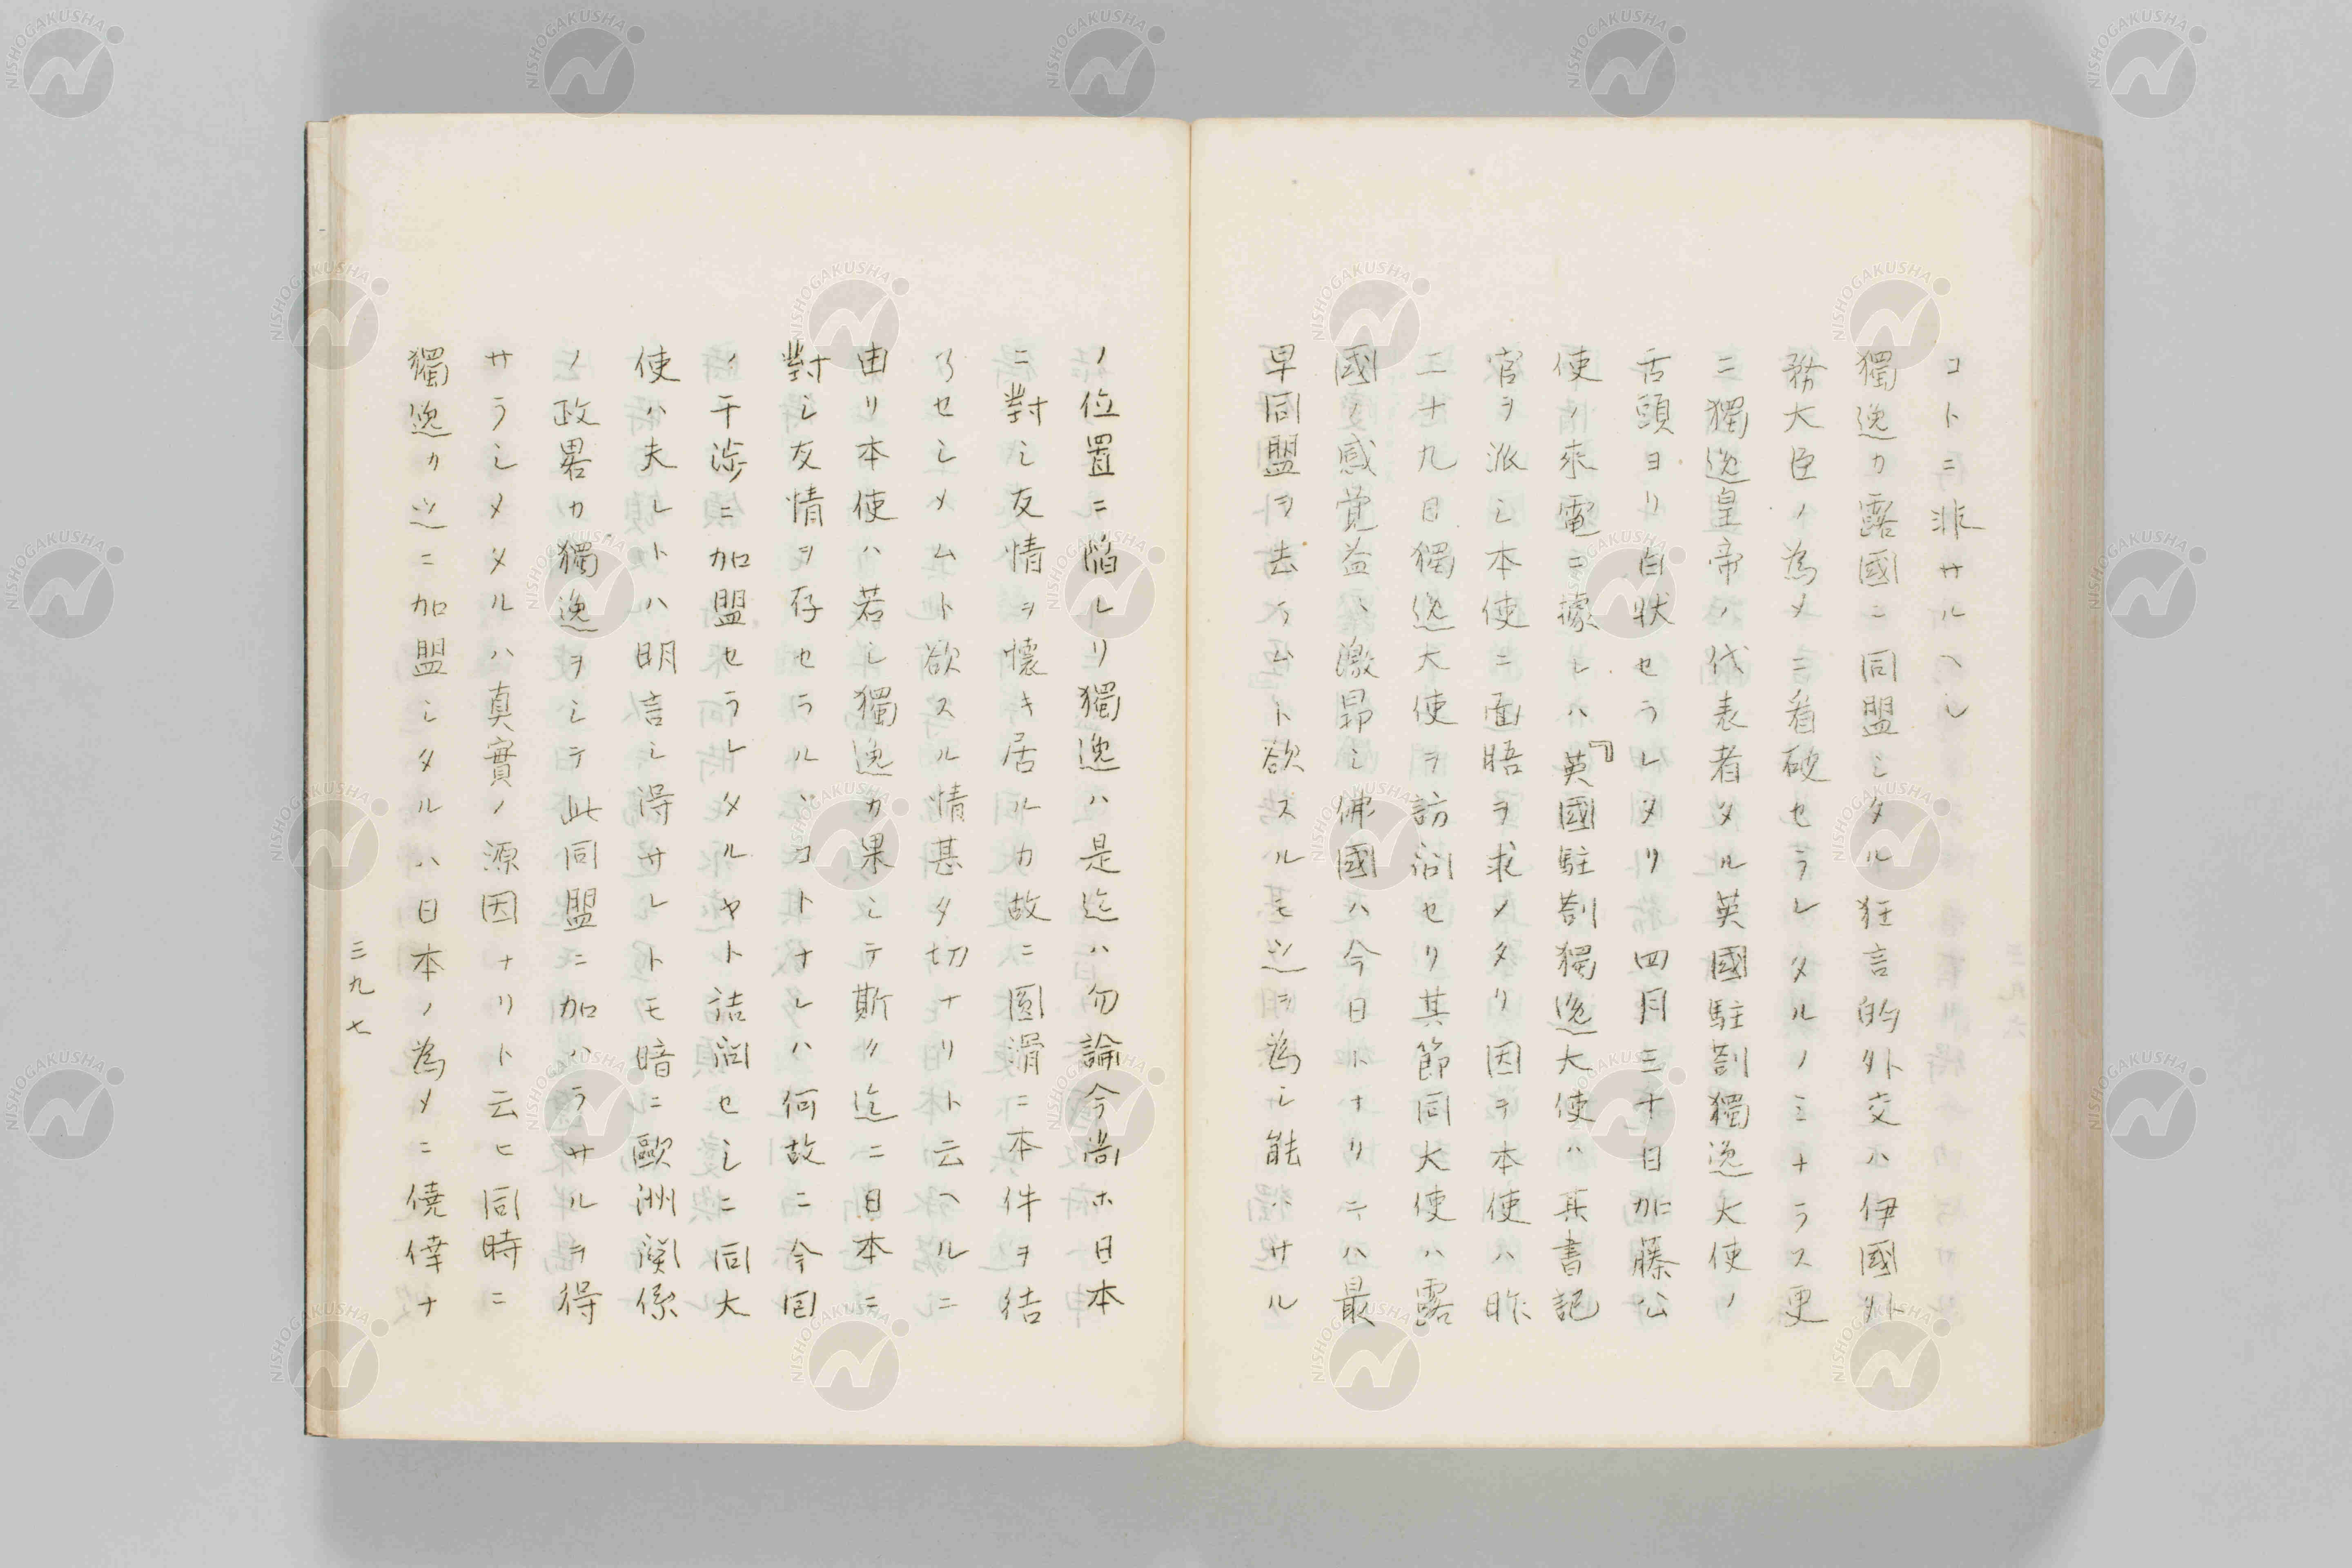 コトニ非サルヘシ
獨逸カ露國ニ同盟シタル狂言的外交ハ伊國外
務大臣ノ為メニ看破セラレタルノミナラス更
ニ獨逸皇帝ノ代表者タル英國駐剳獨逸大使ノ
舌頭ヨリ白状セラレタリ四月三十日加藤公
使ノ來電ニ據レハ『英國駐剳獨逸大使ハ其書記
官ヲ派シ本使ニ面晤ヲ求メタリ因テ本使ハ昨
二十九日獨逸大使ヲ訪問セリ其節同大使ハ露
國ノ感覚益、激昂シ佛國ハ今日トナリテハ最
早同盟ヲ去ラムト欲スルモ之ヲ為シ能ハサル
ノ位置ニ陥レリ獨逸ハ是迄ハ勿論今尚ホ日本
ニ對シ友情ヲ懐キ居ルカ故ニ圓滑ニ本件ヲ結
了セシメムト欲スル情甚タ切ナリト云ヘルニ
由リ本使ハ若シ獨逸カ果シテ斯ク迄ニ日本ニ
對シ友情ヲ存セラルヽコトナレハ何故ニ今回
ノ干渉ニ加盟セラレタルヤト詰問セシニ同大
使ハ夫レトハ明言シ得サレトモ暗ニ歐洲関係
ノ政畧カ獨逸ヲシテ此同盟ニ加ハラサルヲ得
サラシメタルハ真實ノ源因ナリト云ヒ同時ニ
獨逸カ之ニ加盟シタルハ日本ノ為メニ僥倖ナ
三九七
NISHOGAKUSHA